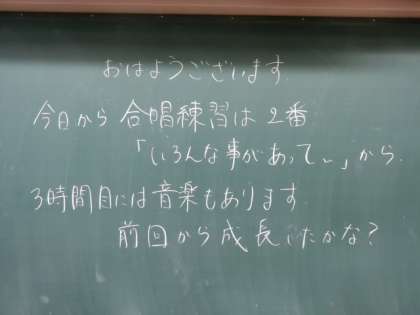 おはようございます
今日から 合唱練習は 2番
「いろんな事があって〜」から
3時間目には音楽もあります
前回から成長したかな?